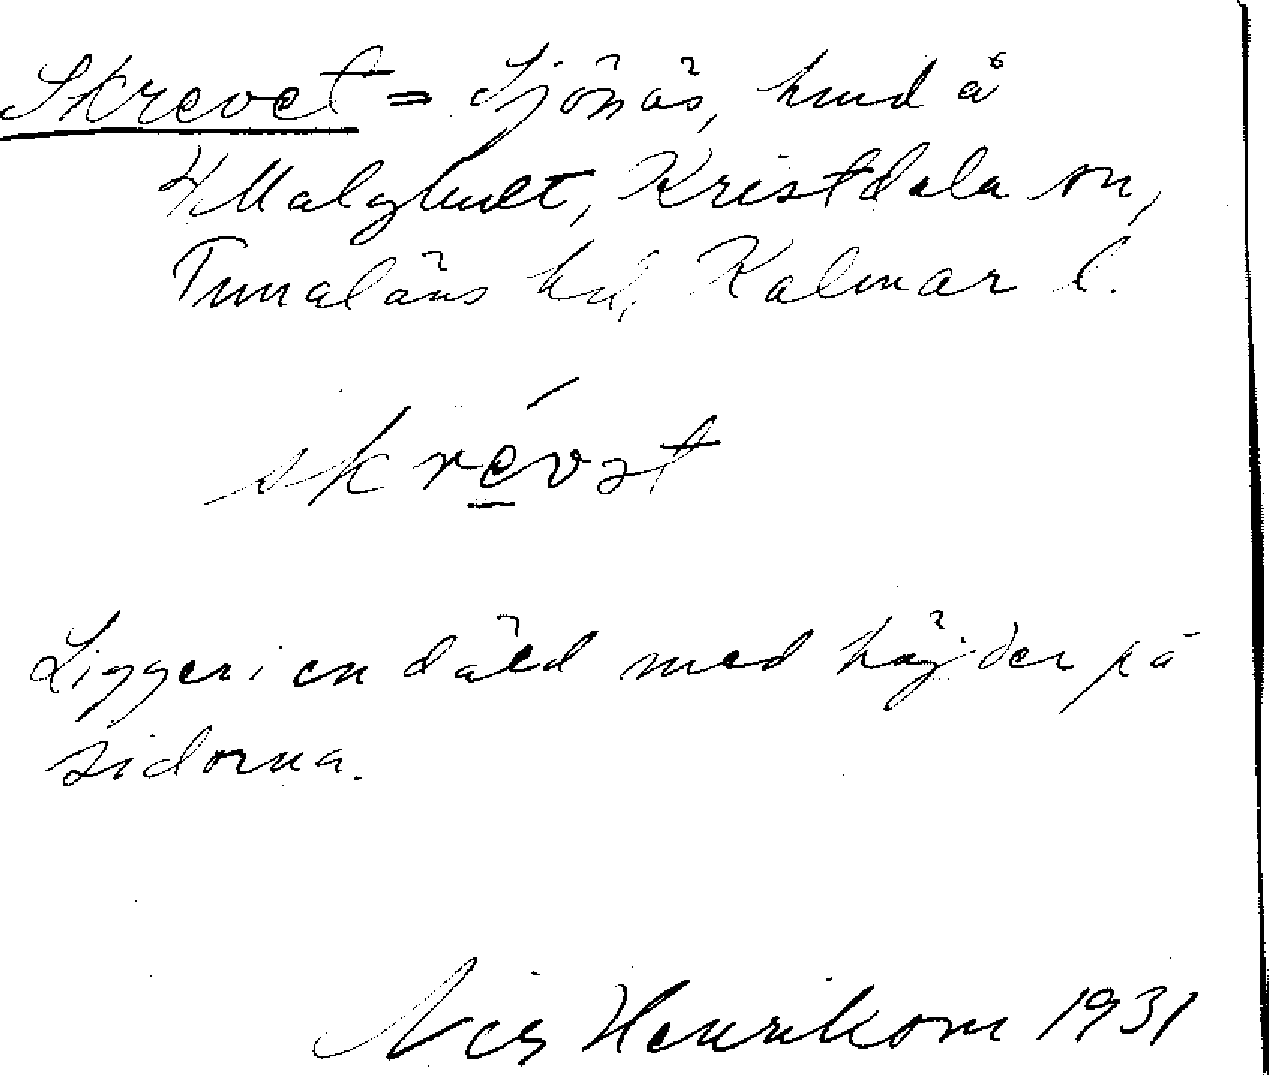 Skrevet = Sjönäs, hmd å
4 Malghult, Kristdala sn,
Tunaläns hd, Kalmar l.
skrévət
Ligger i en däld med höjder på
sidorna.
Henrikson 1931